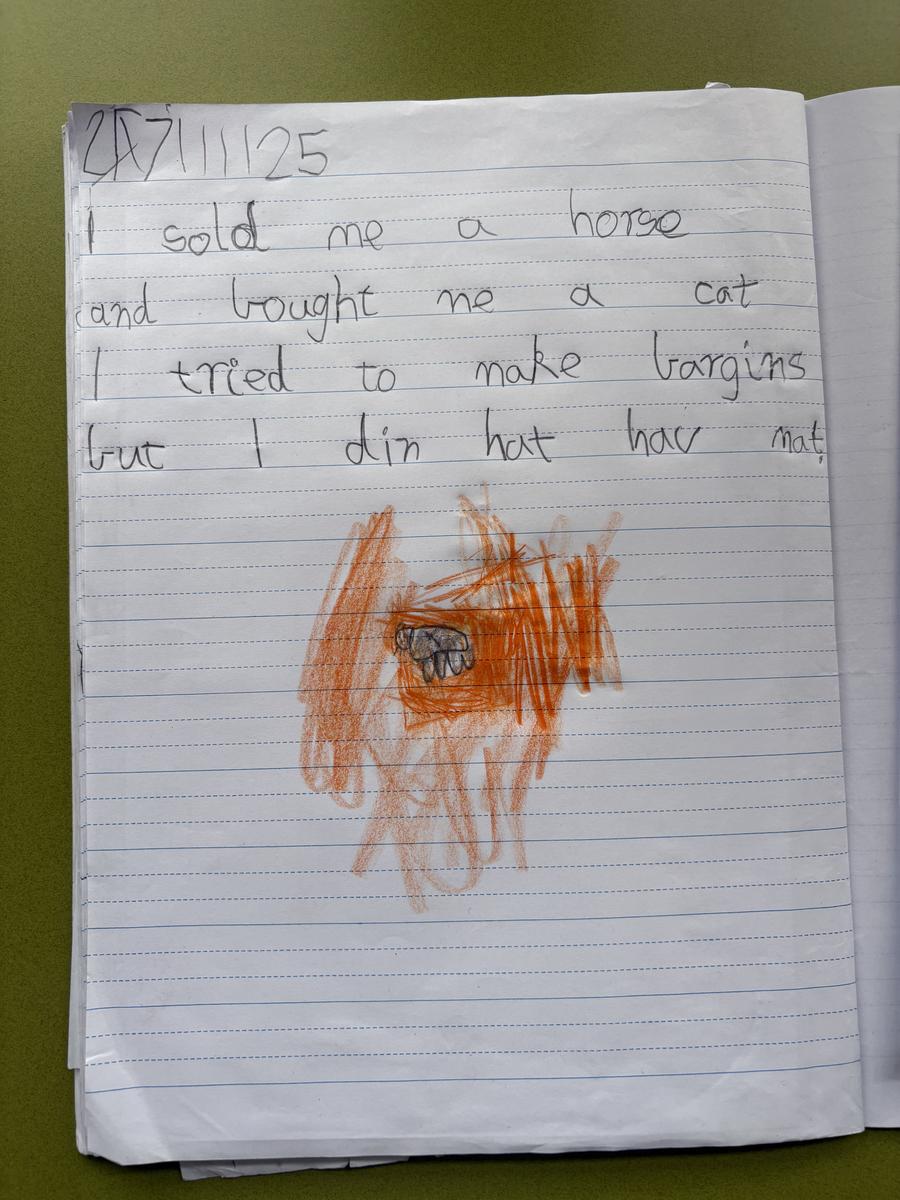 27/11/25
I sold me a horse
and bought me a cat
I tried to make bargins
but I din hat hav mat.